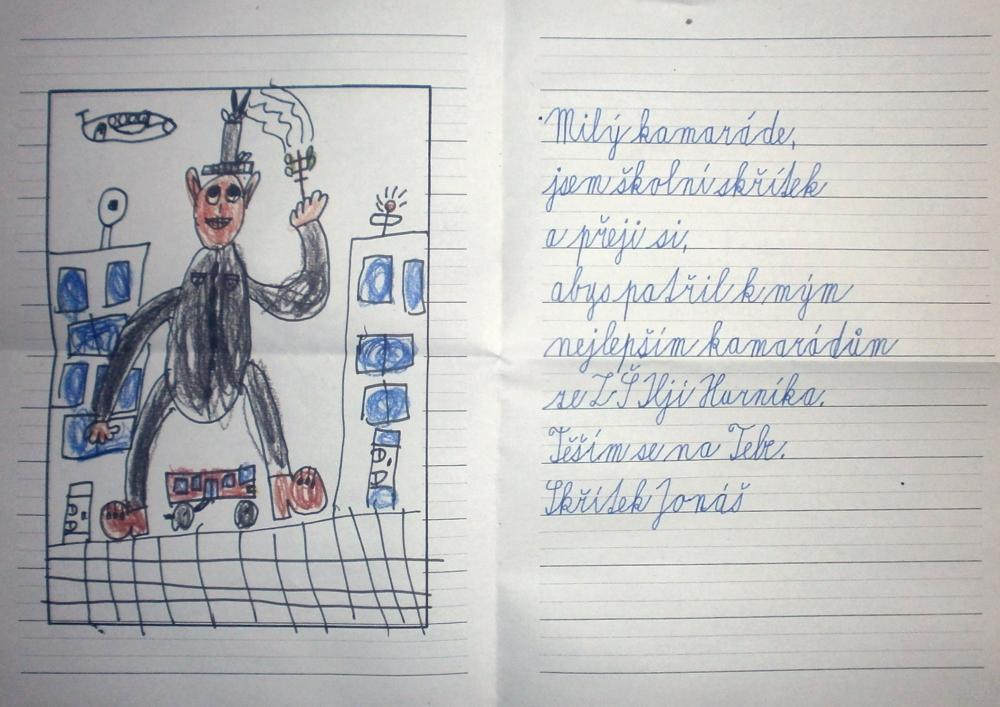 Milý kamaráde,
jsem školní skřítek
a přeji si,
abys patřil k mým
nejlepším kamarádům
ze ZŠ Ilji Hurníka.
Těším se na Tebe.
Skřítek Jonáš